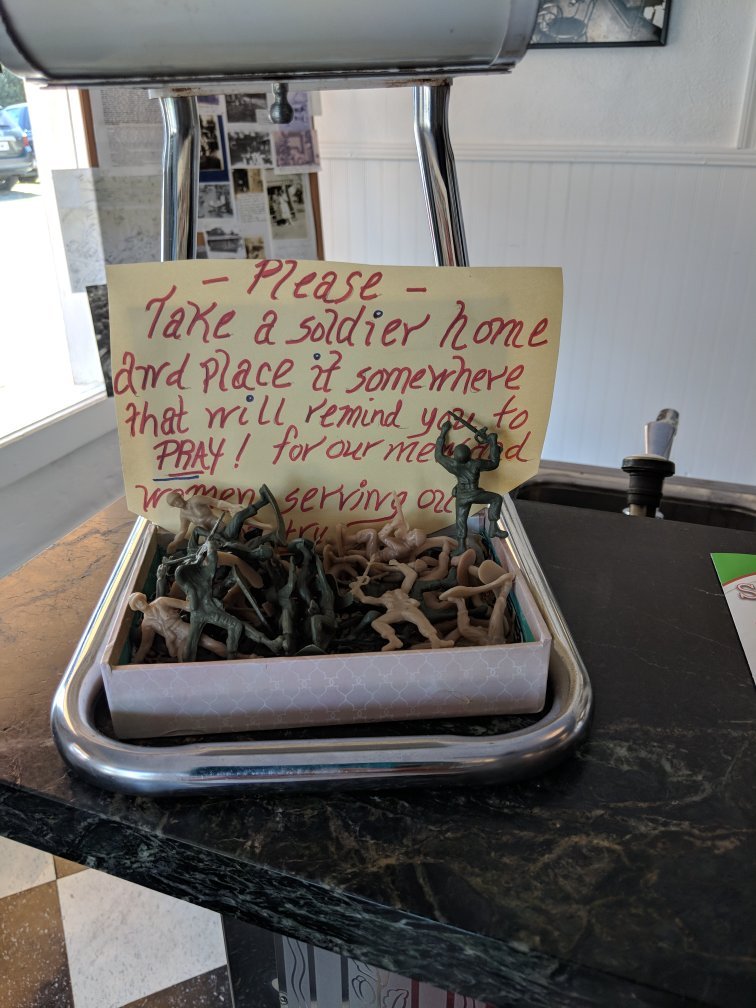 - Please -
Take a soldier home
and place it somewhere
that will remind you to
PRAY! for our men and
women serving our